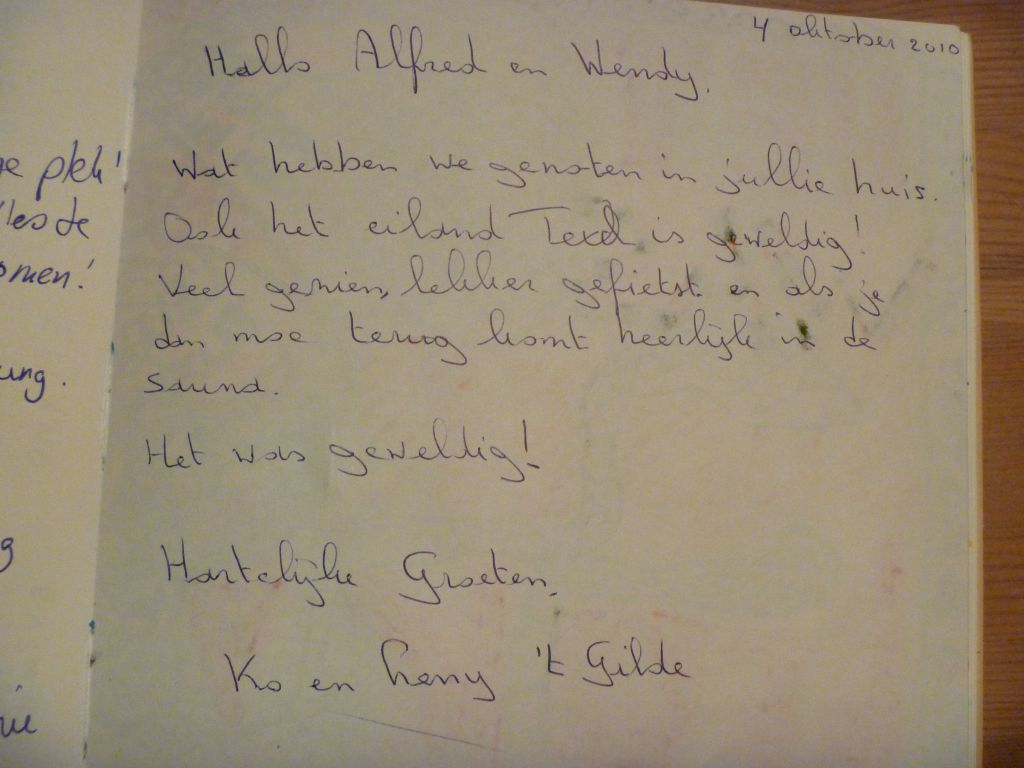 4 oktober 2010
Hallo Alfred en Wendy.
Wat hebben we genoten in jullie huis.
Ook het eiland Texel is geweldig!
Veel gezien, lekker gefietst en als je
dan moe terug komt heerlijk in de
sauna.
Het was geweldig!
Hartelijke Groeten,
Ko en henny 't Gilde
plek!
les de
omen!
ung.